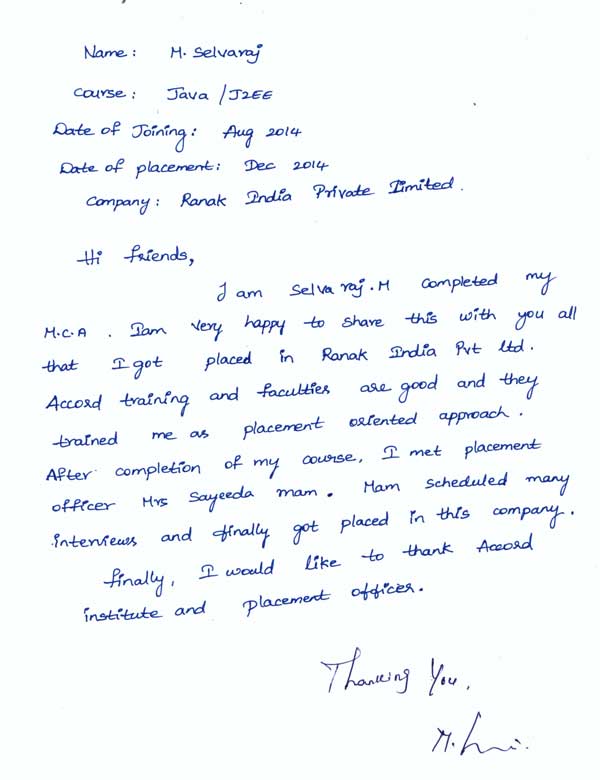 Name: M. Selvaraj
Course: Java / J2EE
Date of Joining: Aug 2014
Date of placement: Dec 2014
Company: Ranak India Private Limited.
Hi friends,
I am Selva raj.M completed my
M.C.A. Iam very happy to share this with you all
that I got placed in Ranak India Pvt ltd.
Accord training and faculties are good and they
trained me as placement oriented approach.
After completion of my course, I met placement
officer Mrs Sayeeda mam. Mam scheduled many
interviews and finally got placed in this company.
finally, I would like to thank Accord
institute and placement officer.
Thanking You,
M.